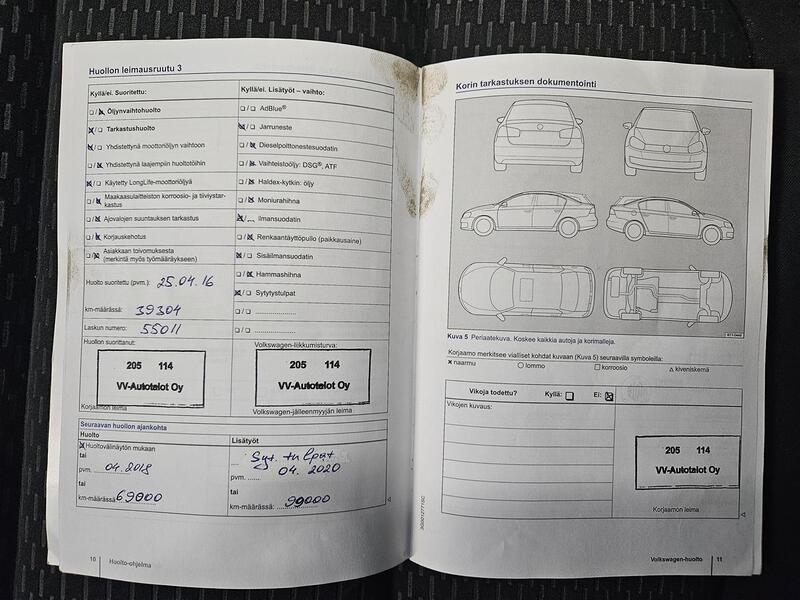 Huollon leimausruutu 3
Kyllä/ei. Suoritettu:
Öljynvaihtohuolto
Tarkastushuolto
Yhdistettynä moottoriöljyn vaihtoon
Yhdistettynä laajempiin huoltotöihin
Käytetty LongLife-moottoriöljyä
Maakaasulaitteiston korroosio- ja tiiviystar-
kastus
Ajovalojen suuntauksen tarkastus
Korjauskehotus
Asiakkaan toivomuksesta
(merkintä myös työmääräykseen)
Huolto suoritettu (pvm.): 25.04.16
km-määrässä: 39304
Laskun numero: 55011
Huollon suorittanut:
205 114
VV-Autotalot Oy
Korjaamon leima
Kyllä/ei. Lisätyöt – vaihto:
AdBlue®
Jarruneste
Dieselpolttonestesuodatin
Vaihteistoöljy: DSG®, ATF
Haldex-kytkin: öljy
Moniurahihna
Ilmansuodatin
Renkaantäyttöpullo (paikkausaine)
Sisäilmansuodatin
Hammashihna
Sytytystulpat
Volkswagen-liikkumisturva:
205 114
VV-Autotalot Oy
Volkswagen-jälleenmyyjän leima
Seuraavan huollon ajankohta
Huolto
Huoltovälinäytön mukaan
tai
pvm. 04.2018
tai
km-määrässä 69000
Lisätyöt
Syt. tulpat
pvm. 04. 2020
tai
km-määrässä: 99000
10 Huolto-ohjelma
Korin tarkastuksen dokumentointi
Kuva 5 Periaatekuva. Koskee kaikkia autoja ja korimalleja.
Korjaamo merkitsee vialliset kohdat kuvaan (Kuva 5) seuraavilla symboleilla:
× naarmu ○ lommo □ korroosio △ kiveniskemä
Vikoja todettu? Kyllä: Ei:
Vikojen kuvaus:
205 114
VV-Autotalot Oy
Korjaamon leima
Volkswagen-huolto 11